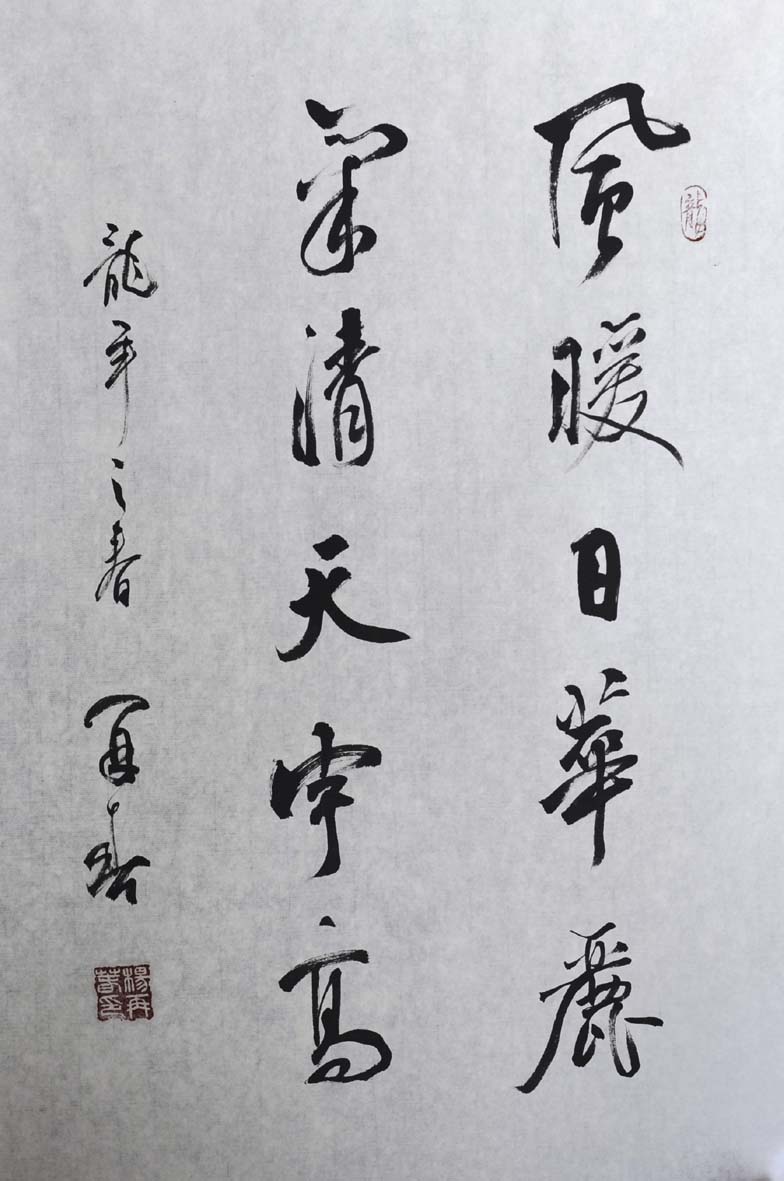 風暖日華麗
氣清天宇高
龍年之春 再春
龍
楊再春印